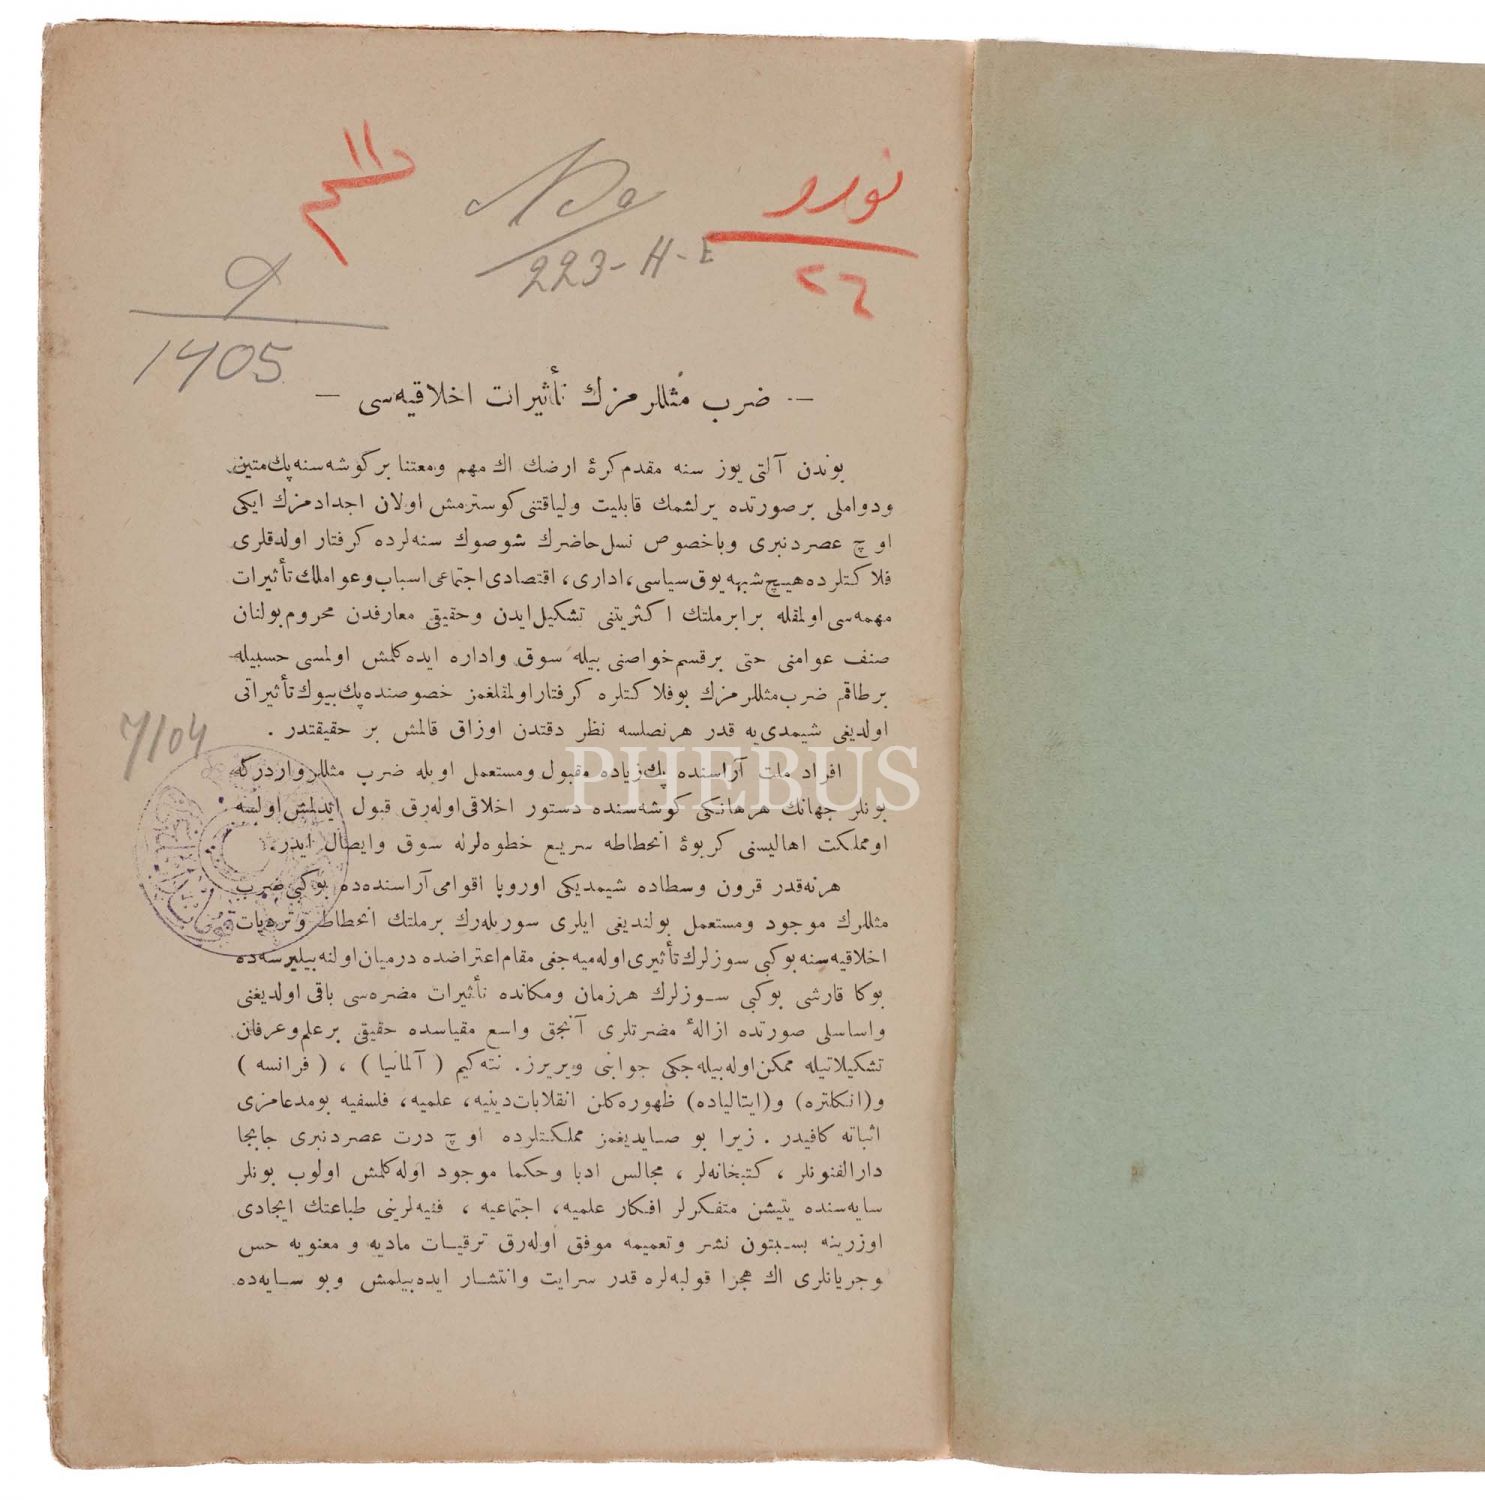 نورو
٢٦
No
223-H-E
9
1405
— ضرب مثللرمزك تأثيرات اخلاقيه‌سی —
بوندن آلتی يوز سنه مقدم كرۀ ارضك اك مهم ومعتنا بر كوشه‌سنه پك متين
ودواملی بر صورتده يرلشمك قابليت ولياقتنی كوسترمش اولان اجدادمزك ايكی
اوچ عصردنبری وباخصوص نسل حاضرك شوصوك سنه‌لرده كرفتار اولدقلری
فلاكتلرده هيچ شبهه يوق سياسی، اداری، اقتصادی اجتماعی اسباب وعواملك تأثيرات
مهمه‌سی اولمقله برابر ملتك اكثريتنی تشكيل ايدن وحقيقی معارفدن محروم بولنان
صنف عوامنی حتی بر قسم خواصنی بيله سوق واداره ايده‌كلمش اولمسی حسبيله
بر طاقم ضرب مثللرمزك بو فلاكتلره كرفتار اولمقلغمز خصوصنده پك بيوك تأثيراتی
اولديغی شيمدی‌يه قدر هر نصلسه نظر دقتدن اوزاق قالمش بر حقيقتدر .
افراد ملت آراسنده پك زياده مقبول ومستعمل اويله ضرب مثللر واردركه
بونلر جهانك هر هانكی كوشه‌سنده دستور اخلاقی اوله‌رق قبول ايدلمش اولسه
او مملكت اهاليسنی كريوۀ انحطاطه سريع خطوه‌لرله سوق وايصال ايدر.
هر نه‌قدر قرون وسطاده شيمديكی اوروپا اقوامی آراسنده‌ده بوكبی ضرب
مثللرك موجود ومستعمل بولنديغی ايلری سوريله‌رك بر ملتك انحطاط وترقيات
اخلاقيه‌سنه بوكبی سوزلرك تأثيری اوله‌ميه‌جغی مقام اعتراضده درميان اولنه‌بيليرسه‌ده
بوكا قارشی بوكبی سوزلرك هر زمان ومكانده تأثيرات مضره‌سی باقی اولديغنی
واساسلی صورتده ازالۀ مضرتلری آنجق واسع مقياسده حقيقی بر علم وعرفان
تشكيلاتيله ممكن اوله‌بيله‌جكی جوابنی ويريرز. نته‌كيم ( آلمانيا ) ، ( فرانسه )
و(انكلتره) و(ايتالياده) ظهوره كلن انقلابات دينيه، علميه، فلسفيه بو مدعامزی
اثباته كافيدر . زيرا بو صايديغمز مملكتلرده اوچ درت عصردنبری جابجا
دارالفنونلر ، كتبخانه‌لر ، مجالس ادبا وحكما موجود اوله‌كلمش اولوب بونلر
سايه‌سنده يتيشن متفكرلر افكار علميه، اجتماعيه ، فنيه‌لرينی طباعتك ايجادی
اوزرينه بسبتون نشر وتعميمه موفق اوله‌رق ترقيات ماديه و معنويه حس
وجريانلری اك هجرا قولبه‌لره قدر سرايت وانتشار ايده‌بيلمش وبو سايه‌ده
7/04
PHEBUS